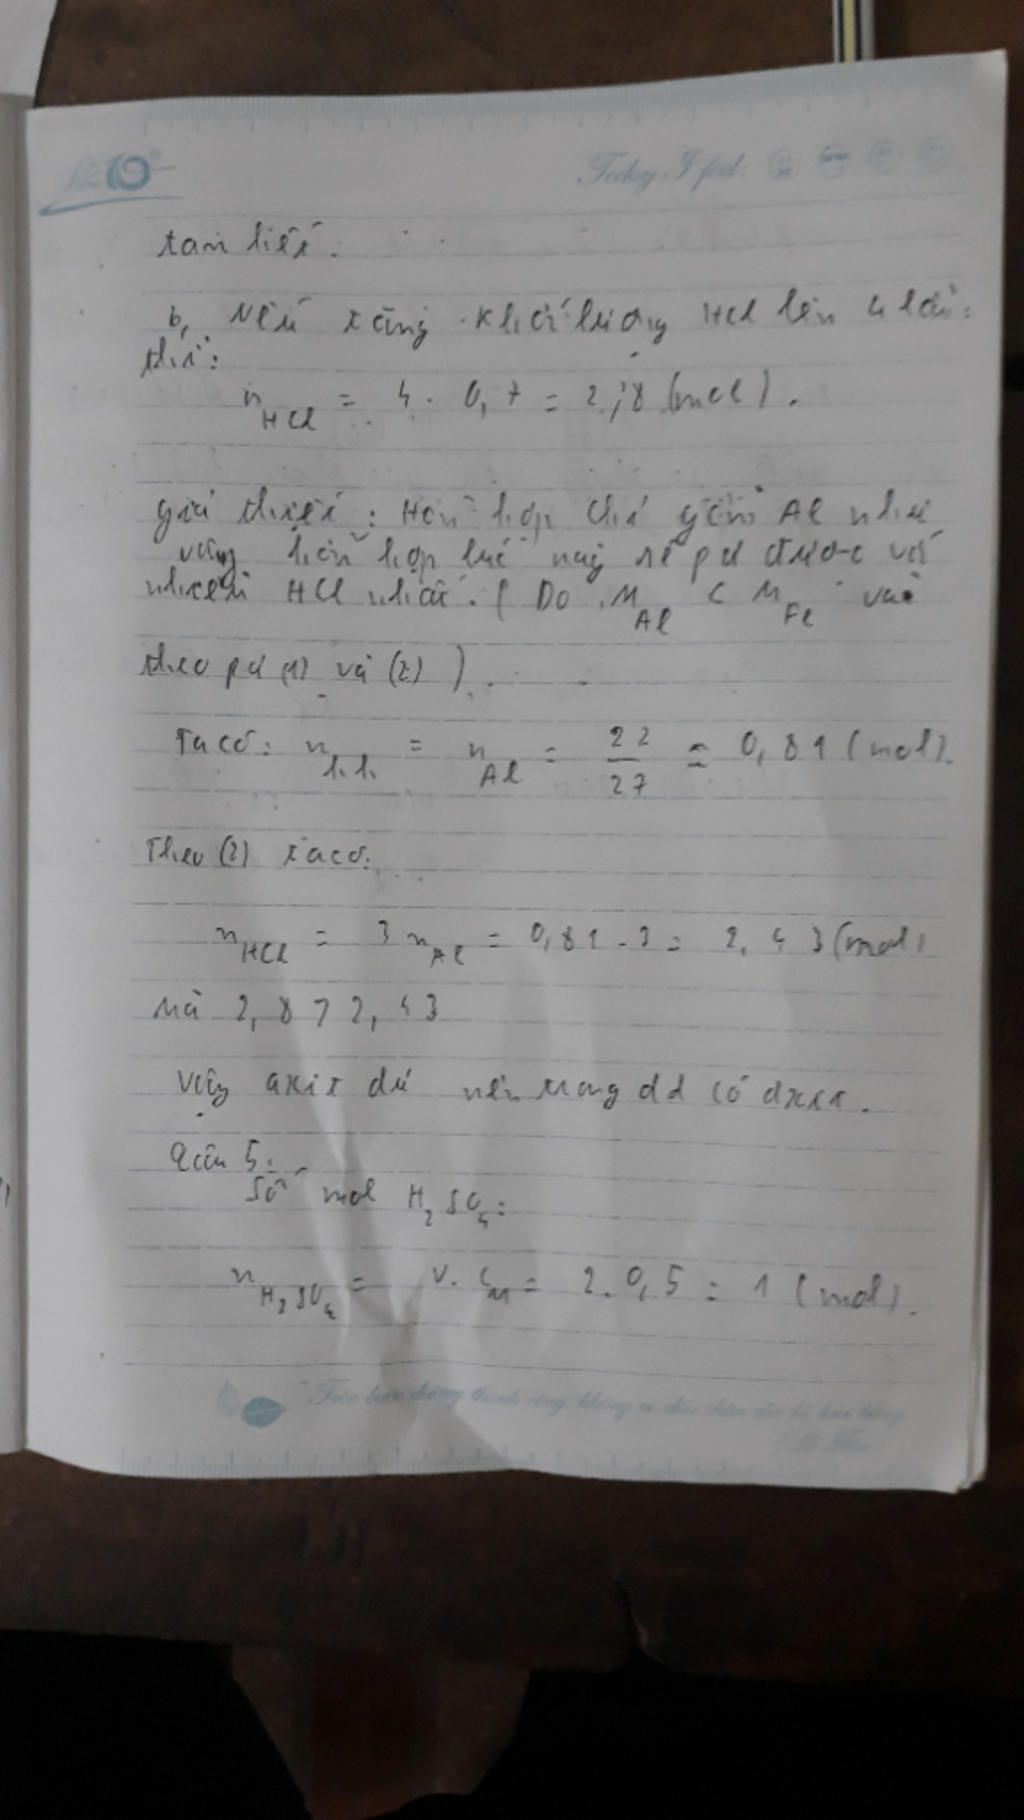 Today I feel:
tan hết.
b, Nếu tăng khối lượng HCl lên 4 lần:
thì:
n HCl = 4 . 0,7 = 2,8 (mol).
giả thiết: Hỗn hợp chỉ gồm Al như
vậy hỗn hợp lúc này sẽ pứ được với
nhiều HCl nhất. ( Do M Al < M Fe và
theo pứ (1) và (2) ).
Ta có: n h.h. = n Al = 22/27 ≈ 0,81 (mol).
Theo (2) ta có:
n HCl = 3 n Al = 0,81 . 3 = 2,43 (mol)
mà 2,8 > 2,43
Vậy axit dư nên trong dd có axit.
Câu 5:
Số mol H₂SO₄:
n H₂SO₄ = V. C M = 2. 0,5 = 1 (mol).
"Trên bước đường thành công không có dấu chân của kẻ lười biếng